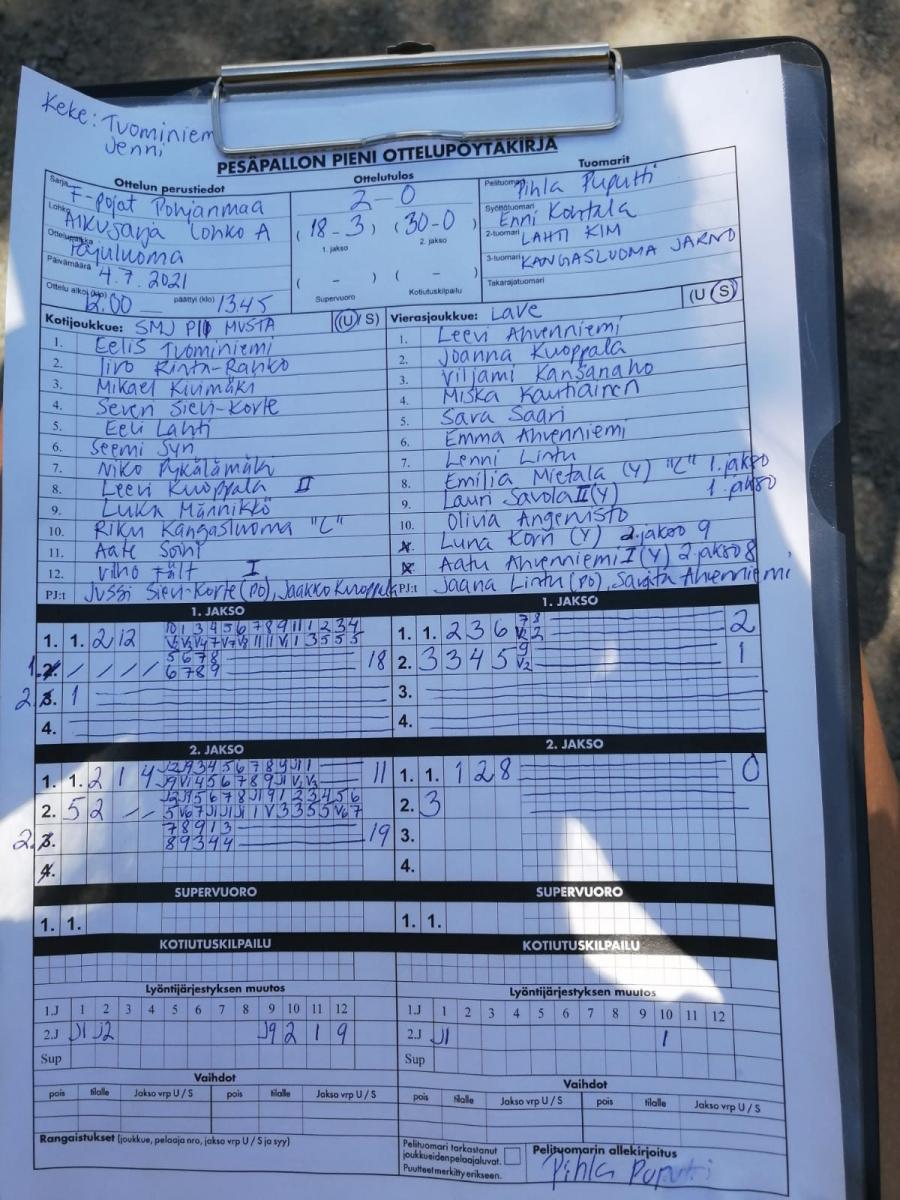 Keke: Tuominiemi
Jenni
PESÄPALLON PIENI OTTELUPÖYTÄKIRJA
Ottelun perustiedot
Ottelutulos
Tuomarit
Sarja F-pojat Pohjanmaa
2-0
Pelituomari Pihla Puputti
Lohko Alkusarja Lohko A
(18-3) (30-0)
Syöttötuomari Enni Kohtala
1. jakso 2. jakso
Ottelupaikka Törjuluoma
2-tuomari LAHTI KIM
Päivämäärä 4.7.2021
( - ) ( - )
3-tuomari KANGASLUOMA JARNO
Ottelu alkoi (klo) 12.00 päättyi (klo) 13.45
Supervuoro Kotiutuskilpailu
Takarajatuomari
Kotijoukkue: SMJ MUSTA (U/S)
Vierasjoukkue: LAVE (U S)
1. Eelis Tuominiemi
1. Leevi Ahvenniemi
2. Iiro Rinta-Rahko
2. Joanna Kuoppala
3. Mikael Kivimäki
3. Viljami Kansanaho
4. Seven Sien-Korte
4. Miska Kautiainen
5. Eeli Lahti
5. Sara Saari
6. Seemi Syn
6. Emma Ahvenniemi
7. Niko Pykälämäki
7. Lenni Lintu
8. Leevi Kuoppala II
8. Emilia Mietala (Y) "C" 1.jakso
9. Luka Männikkö
9. Lauri Savola II (Y) 1.jakso
10. Riku Kangasluoma "C"
10. Olivia Angervisto
11. Aate Soini
Luna Korn (Y) 2.jakso 9
12. Vilho Fält I
Aatu Ahvenniemi I (Y) 2.jakso 8
PJ:t Jussi Sien-Korte (PO), Jaakko Kuoppala
PJ:t Jaana Lintu (PO), Sarita Ahvenniemi
1. JAKSO
1. JAKSO
1. 1. 2 12
1. 1. 2 3 6 2
18
2. 3 3 4 5 1
1
3.
4.
4.
2. JAKSO
2. JAKSO
1. 1. 2 1 4 11
1. 1. 1 2 8 0
2. 5 2
2. 3
7 8 9 1 3
8 9 3 4 4 19
3.
4.
4.
SUPERVUORO
SUPERVUORO
1. 1.
1. 1.
KOTIUTUSKILPAILU
KOTIUTUSKILPAILU
Lyöntijärjestyksen muutos
Lyöntijärjestyksen muutos
1.J 1 2 3 4 5 6 7 8 9 10 11 12
1.J 1 2 3 4 5 6 7 8 9 10 11 12
2.J J1 J2 J9 2 1 9
2.J J1 1
Sup
Sup
Vaihdot
Vaihdot
pois tilalle Jakso vrp U / S pois tilalle Jakso vrp U / S
pois tilalle Jakso vrp U / S pois tilalle Jakso vrp U / S
Rangaistukset (joukkue, pelaaja nro, jakso vrp U / S ja syy)
Pelituomari tarkastanut
joukkueiden pelaajaluvat.
Puutteet merkitty erikseen.
Pelituomarin allekirjoitus
Pihla Puputti